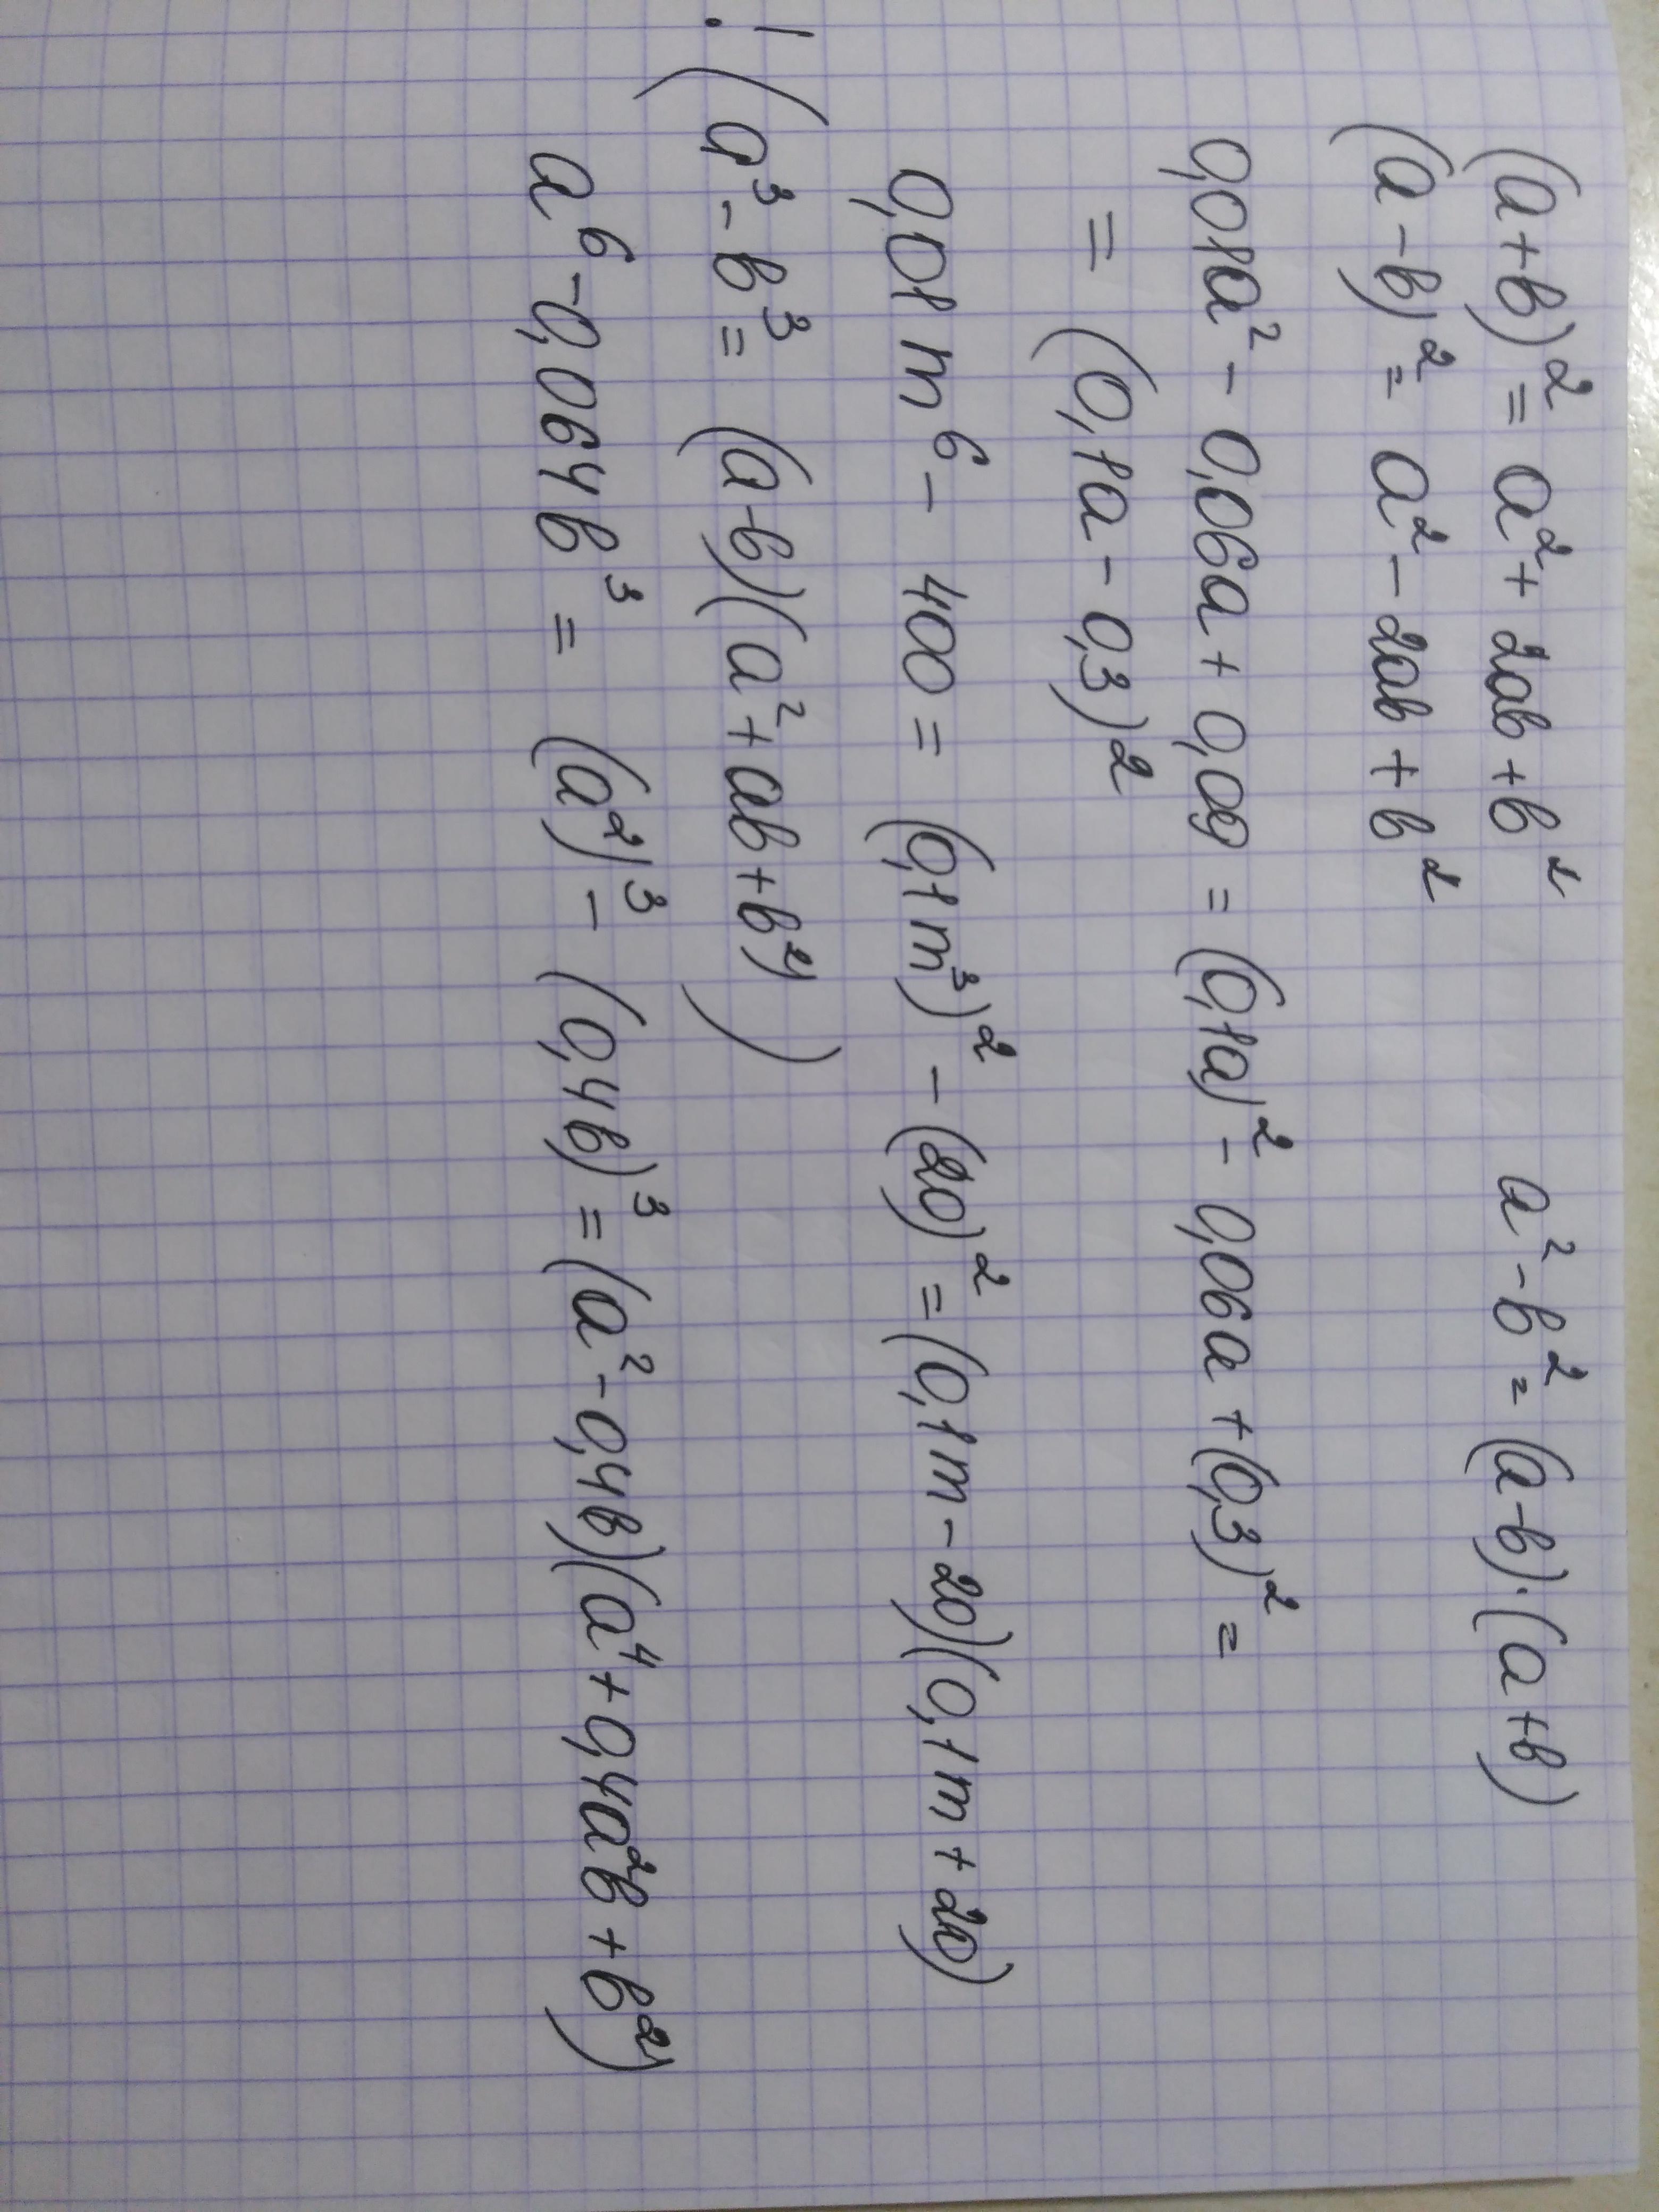 (a+b)² = a² + 2ab + b² a² - b² = (a-b)·(a+b)
(a-b)² = a² - 2ab + b²
0,01a² - 0,06a + 0,09 = (0,1a)² - 0,06a + (0,3)² =
= (0,1a - 0,3)²
0,01m⁶ - 400 = (0,1m³)² - (20)² = (0,1m - 20)(0,1m + 20)
! (a³ - b³ = (a-b)(a² + ab + b²))
a⁶ - 0,064b³ = (a²)³ - (0,4b)³ = (a² - 0,4b)(a⁴ + 0,4a²b + b²)